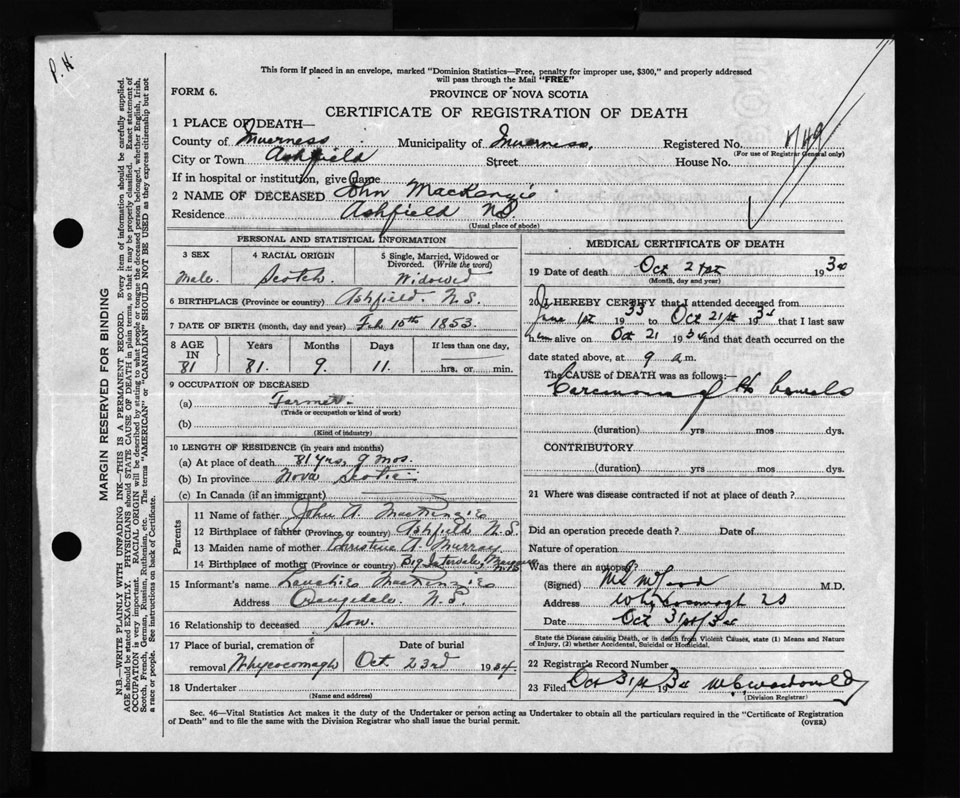 P. H.
This form if placed in an envelope, marked "Dominion Statistics—Free, penalty for improper use, $300," and properly addressed
will pass through the Mail "FREE"
FORM 6.
PROVINCE OF NOVA SCOTIA
CERTIFICATE OF REGISTRATION OF DEATH
1 PLACE OF DEATH—
County of Inverness Municipality of Inverness, Registered No. 1749
(For use of Registrar General only)
City or Town Ashfield Street House No.
If in hospital or institution, give name
2 NAME OF DECEASED John MacKenzie
Residence Ashfield N.S
(Usual place of abode)
PERSONAL AND STATISTICAL INFORMATION
3 SEX 4 RACIAL ORIGIN 5 Single, Married, Widowed or Divorced. (Write the word)
Male. Scotch. Widowed
6 BIRTHPLACE (Province or country) Ashfield. N.S.
7 DATE OF BIRTH (month, day and year) Feb 10th 1853.
8 AGE IN Years Months Days If less than one day,
81 81. 9. 11. hrs. or min.
9 OCCUPATION OF DECEASED
(a) Farmer.
(Trade or occupation or kind of work)
(b)
(Kind of industry)
10 LENGTH OF RESIDENCE (in years and months)
(a) At place of death 81 yrs, 9 mos.
(b) In province Nova Scotia
(c) In Canada (if an immigrant)
Parents
11 Name of father John A. MacKenzie
12 Birthplace of father (Province or country) Ashfield N.S.
13 Maiden name of mother Christina A. Murray
14 Birthplace of mother (Province or country) Big Intervale,
15 Informant's name MacKenzie
Address Orangedale. N.S.
16 Relationship to deceased Son.
17 Place of burial, cremation or Date of burial
removal Whycocomagh Oct. 23rd 1934.
18 Undertaker
(Name and address)
MEDICAL CERTIFICATE OF DEATH
19 Date of death Oct 21st 1934
(Month, day and year)
20 I HEREBY CERTIFY that I attended deceased from
June 1st 1933 to Oct 21st 1934 that I last saw
him alive on Oct 21 1934 and that death occurred on the
date stated above, at 9 a.m.
The CAUSE of DEATH was as follows:
Carcinoma of the bowels
(duration) yrs mos dys.
CONTRIBUTORY
(duration) yrs mos dys.
21 Where was disease contracted if not at place of death?
Did an operation precede death? Date of
Nature of operation
Was there an autopsy?
(Signed) M.D.
Address Whycocomagh NS
Date Oct 31st/34
State the Disease causing Death, or in death from Violent Causes, state (1) Means and Nature
of Injury, (2) whether Accidental, Suicidal or Homicidal.
22 Registrar's Record Number
23 Filed Oct 31st 1934 MacDonald
(Division Registrar)
Sec. 46—Vital Statistics Act makes it the duty of the Undertaker or person acting as Undertaker to obtain all the particulars required in the "Certificate of Registration
of Death" and to file the same with the Division Registrar who shall issue the burial permit.
(OVER)
MARGIN RESERVED FOR BINDING
N.B.—WRITE PLAINLY WITH UNFADING INK—THIS IS A PERMANENT RECORD. Every item of information should be carefully supplied.
AGE should be stated EXACTLY. PHYSICIANS should STATE CAUSE OF DEATH in plain terms, so that it may be properly classified. Exact statement of
OCCUPATION is very important. RACIAL ORIGIN will be described by stating to what people or tongue the deceased person belonged, whether English, Irish,
Scotch, French, German, Russian, Ruthenian, etc. The terms "AMERICAN" or "CANADIAN" SHOULD NOT BE USED as they express citizenship but not
a race or people. See instructions on back of Certificate.